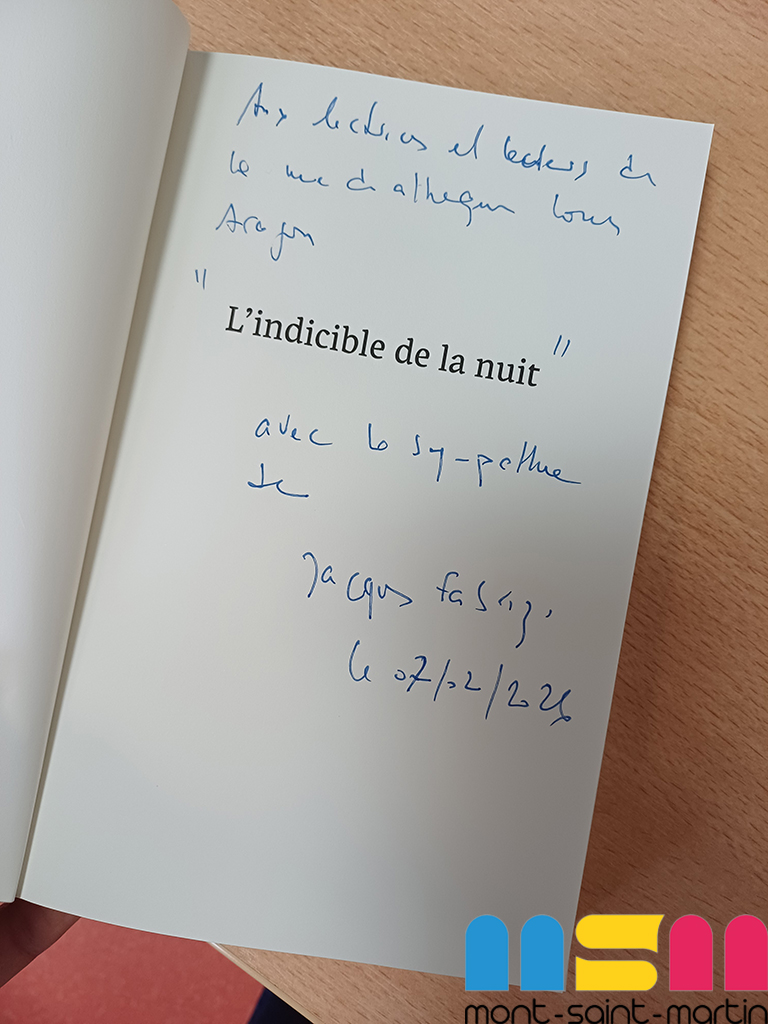 Aux lectrices et lecteurs de
la médiathèque Louis
Aragon
"
L'indicible de la nuit "
avec la sympathie
de
Jacques
le 07/02/202
msm
mont-saint-martin